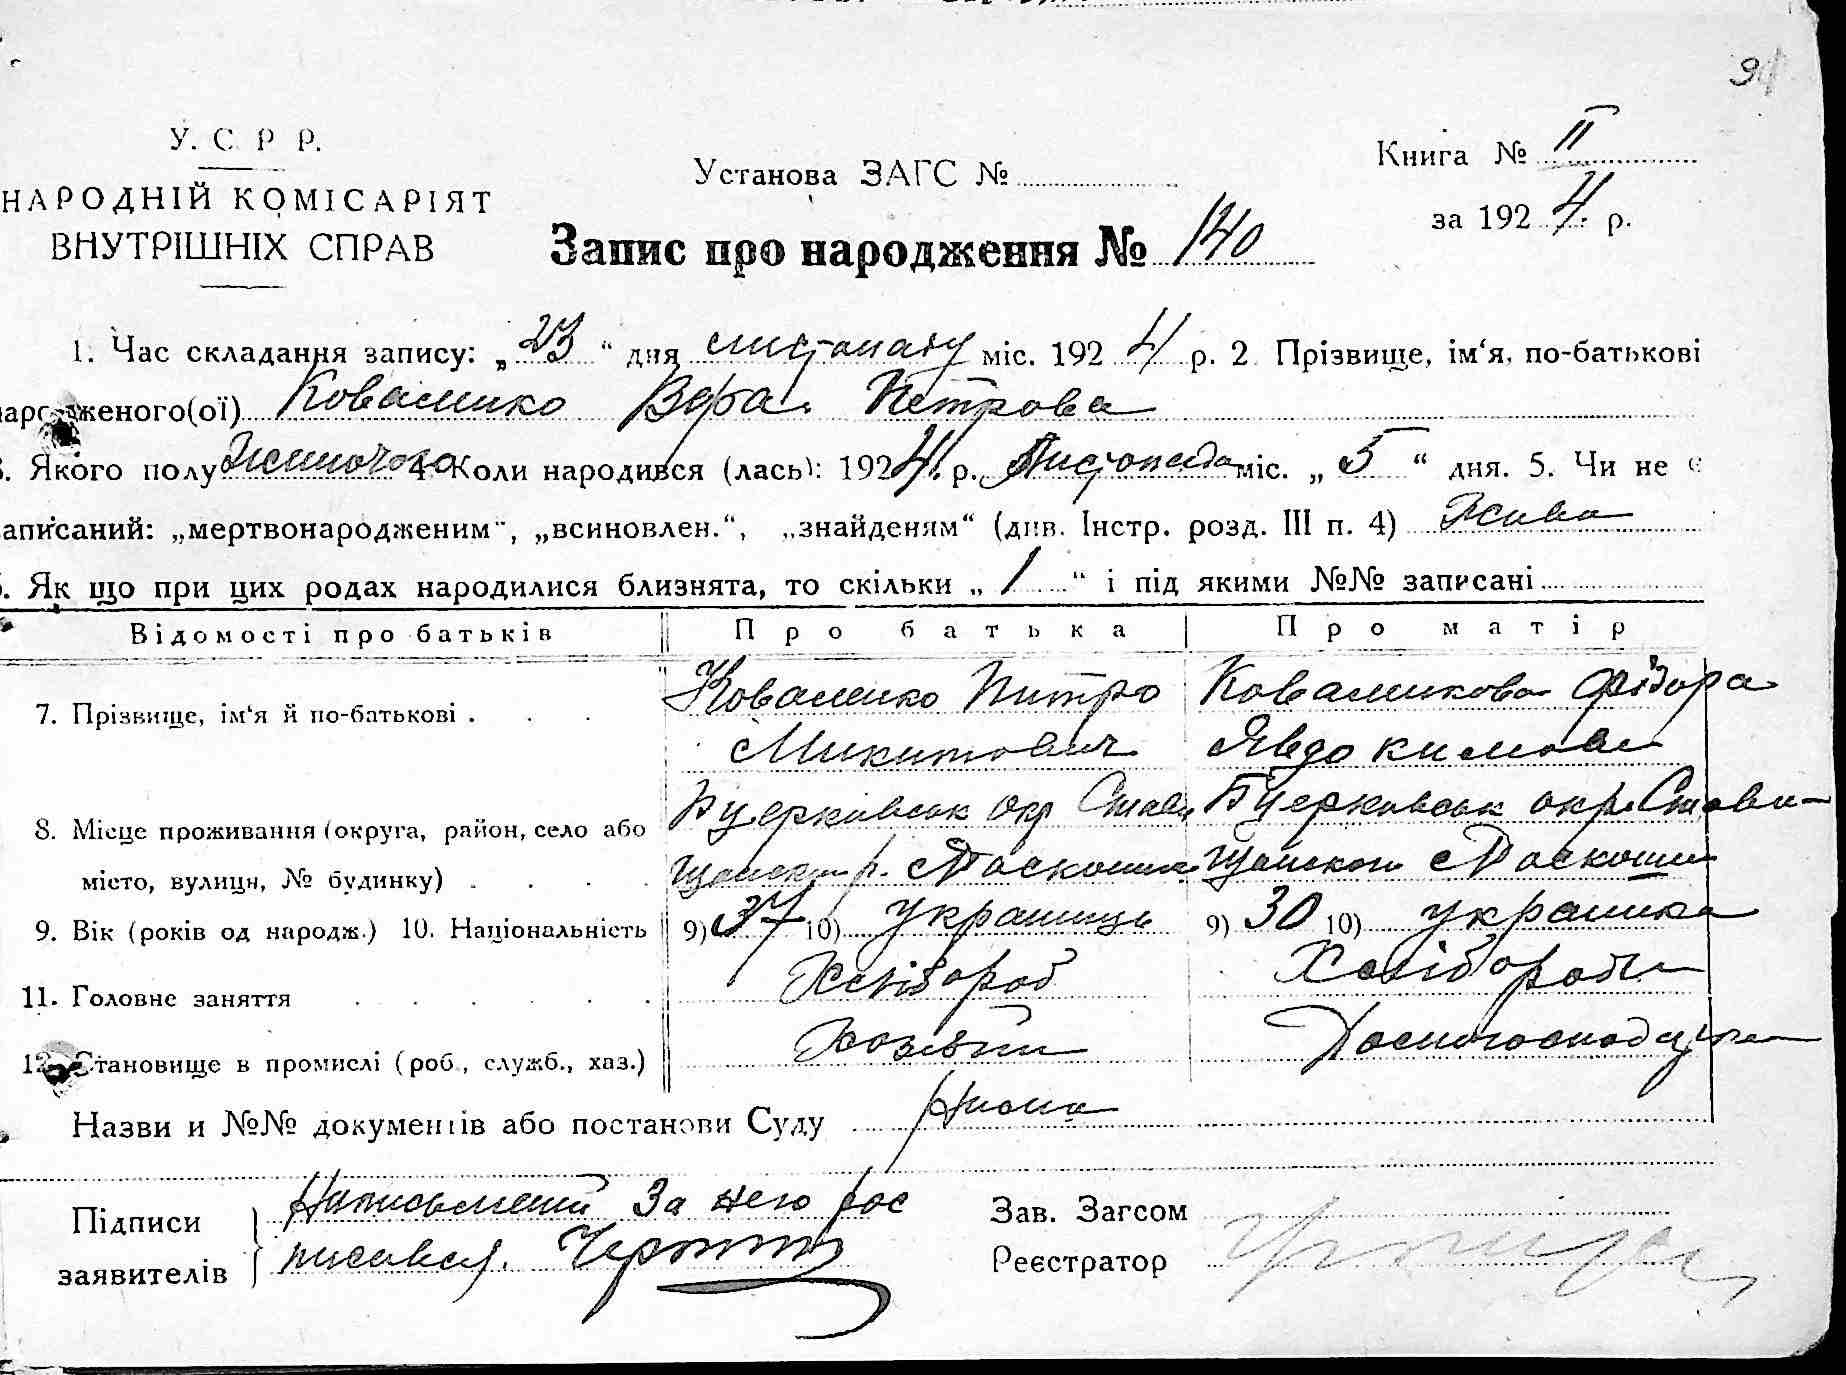 У. С. Р. Р.
НАРОДНІЙ КОМІСАРІЯТ
ВНУТРІШНІХ СПРАВ
Установа ЗАГС №
Книга № II
за 1924 р.
Запис про народження № 140
1. Час складання запису: „23“ дня листопаду міс. 1924 р. 2. Прізвище, ім‘я, по-батькові
народженого(ої) Коваленко Вера Петрова
3. Якого полу Жиночого 4. Коли народився (лась): 1924 р. Листопада міс. „5“ дня. 5. Чи не є
записаний: „мертвонародженим“, „всиновлен.“, „знайденям“ (див. Інстр. розд. III п. 4) Жива
6. Як що при цих родах народилися близнята, то скільки „1“ і під якими №№ записані
Відомості про батьків Про батька Про матір
7. Прізвище, ім‘я й по-батькові . . . Коваленко Питро Коваликова Фідора
Микитович Явдокимова
8. Місце проживання (округа, район, село або Бцерківськ окр Стави Бцерковськ окр. Стави-
місто, вулиця, № будинку) . . . . щанськ р. щанського
9. Вік (років од народж.) 10. Національність 9) 37 10) украинць 9) 30 10) украинка
11. Головне заняття . . . . . . Хлібороб Хлібороб
12. Становище в промислі (роб., служб., хаз.) Хозяїн
Назви и №№ документів або постанови Суду Нима
Підписи заявителів Нописьмений За него рос
писався.
Зав. Загсом
Реєстратор